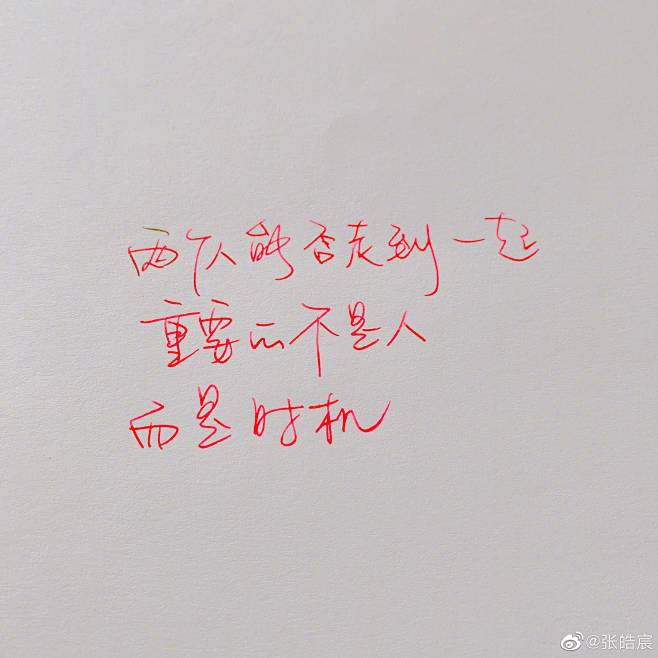 两个人能否走到一起
重要的不是人
而是时机
@张皓宸